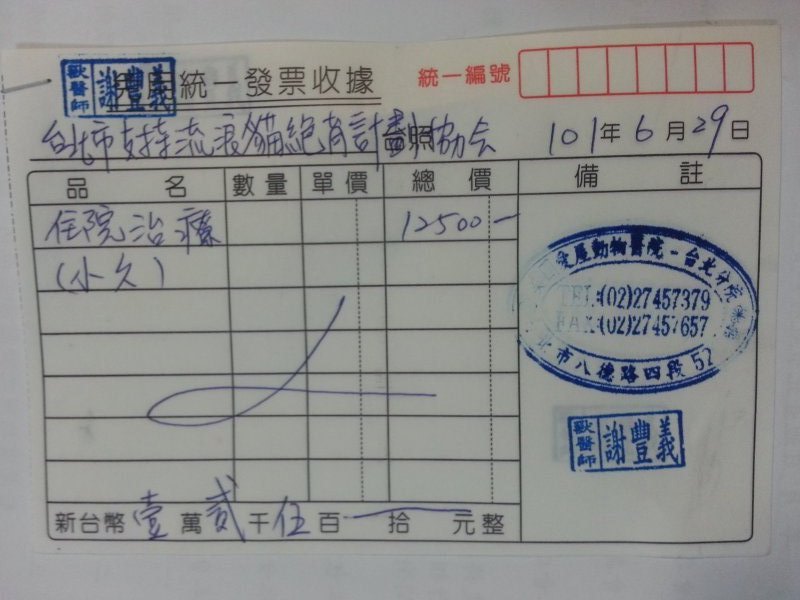 獸醫師 謝豐義
免用統一發票收據
統一編號
台北市支持流浪貓絕育計劃協会 台照
101年6月29日
品名 數量 單價 總價 備註
住院治療 12500-
(小久)
愛屋動物醫院-台北分院
TEL:(02)27457379
FAX:(02)27457657
北市八德路四段52
獸醫師 謝豐義
新台幣壹萬貳千伍百 拾 元整